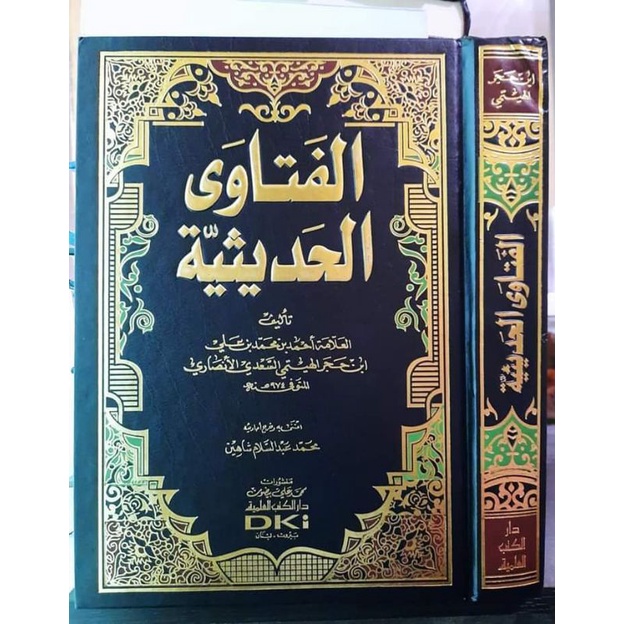 الفتاوى
الحديثية
تأليف
العلامة أحمد بن محمد بن علي
ابن حجر الهيتمي السعدي الأنصاري
المتوفى ٩٧٤ هـ
محمد عبد السلام شاهين
منشورات
محمد علي بيضون
دار الكتب العلمية
DKi
بيروت - لبنان
ابن حجر
الهيتمي
الفتاوى الحديثية
دار
الكتب
العلمية